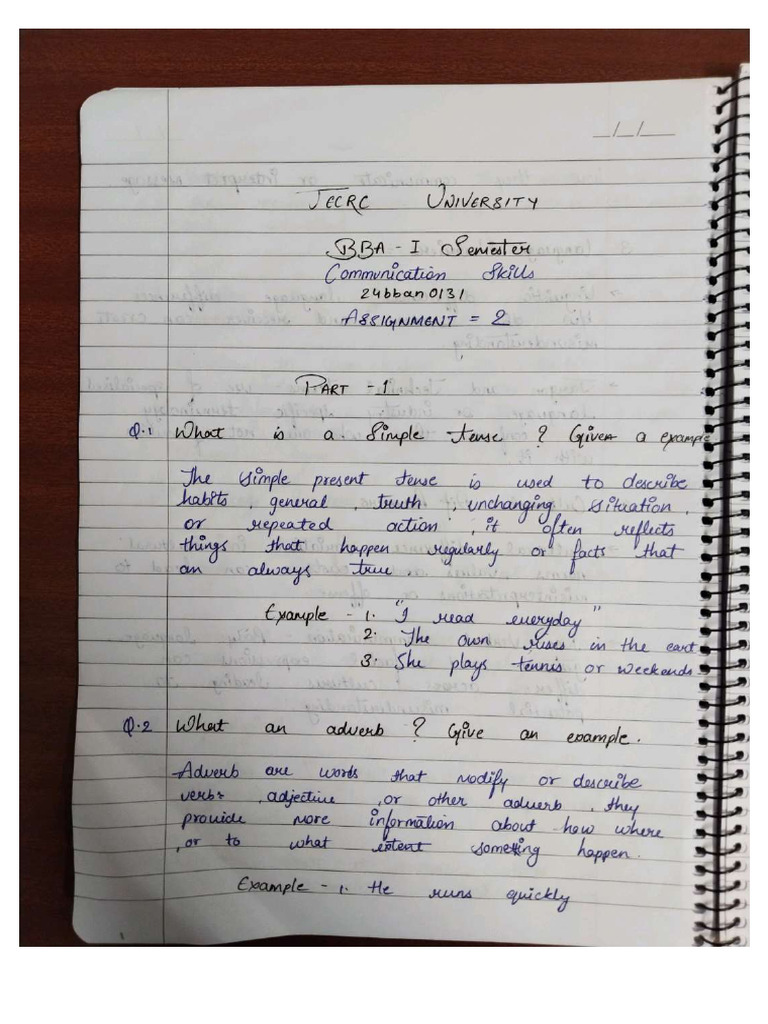 _/_/_
JECRC UNIVERSITY
BBA - I Semester
Communication Skills
24bban0131
ASSIGNMENT = 2
PART - 1
Q.1 What is a Simple tense ? Given a example
The simple present tense is used to describe
habits, general, truth, unchanging situation,
or repeated action, it often reflects
things that happen regularly or facts that
an always true.
Example - 1. "I read everyday"
2. The own rises in the east
3. She plays tennis or weekends
Q.2 What an adverb ? Give an example.
Adverb are words that modify or describe
verbs, adjective, or other adverb, they
provide more information about how where
, or to what extent something happen.
Example - 1. He runs quickly